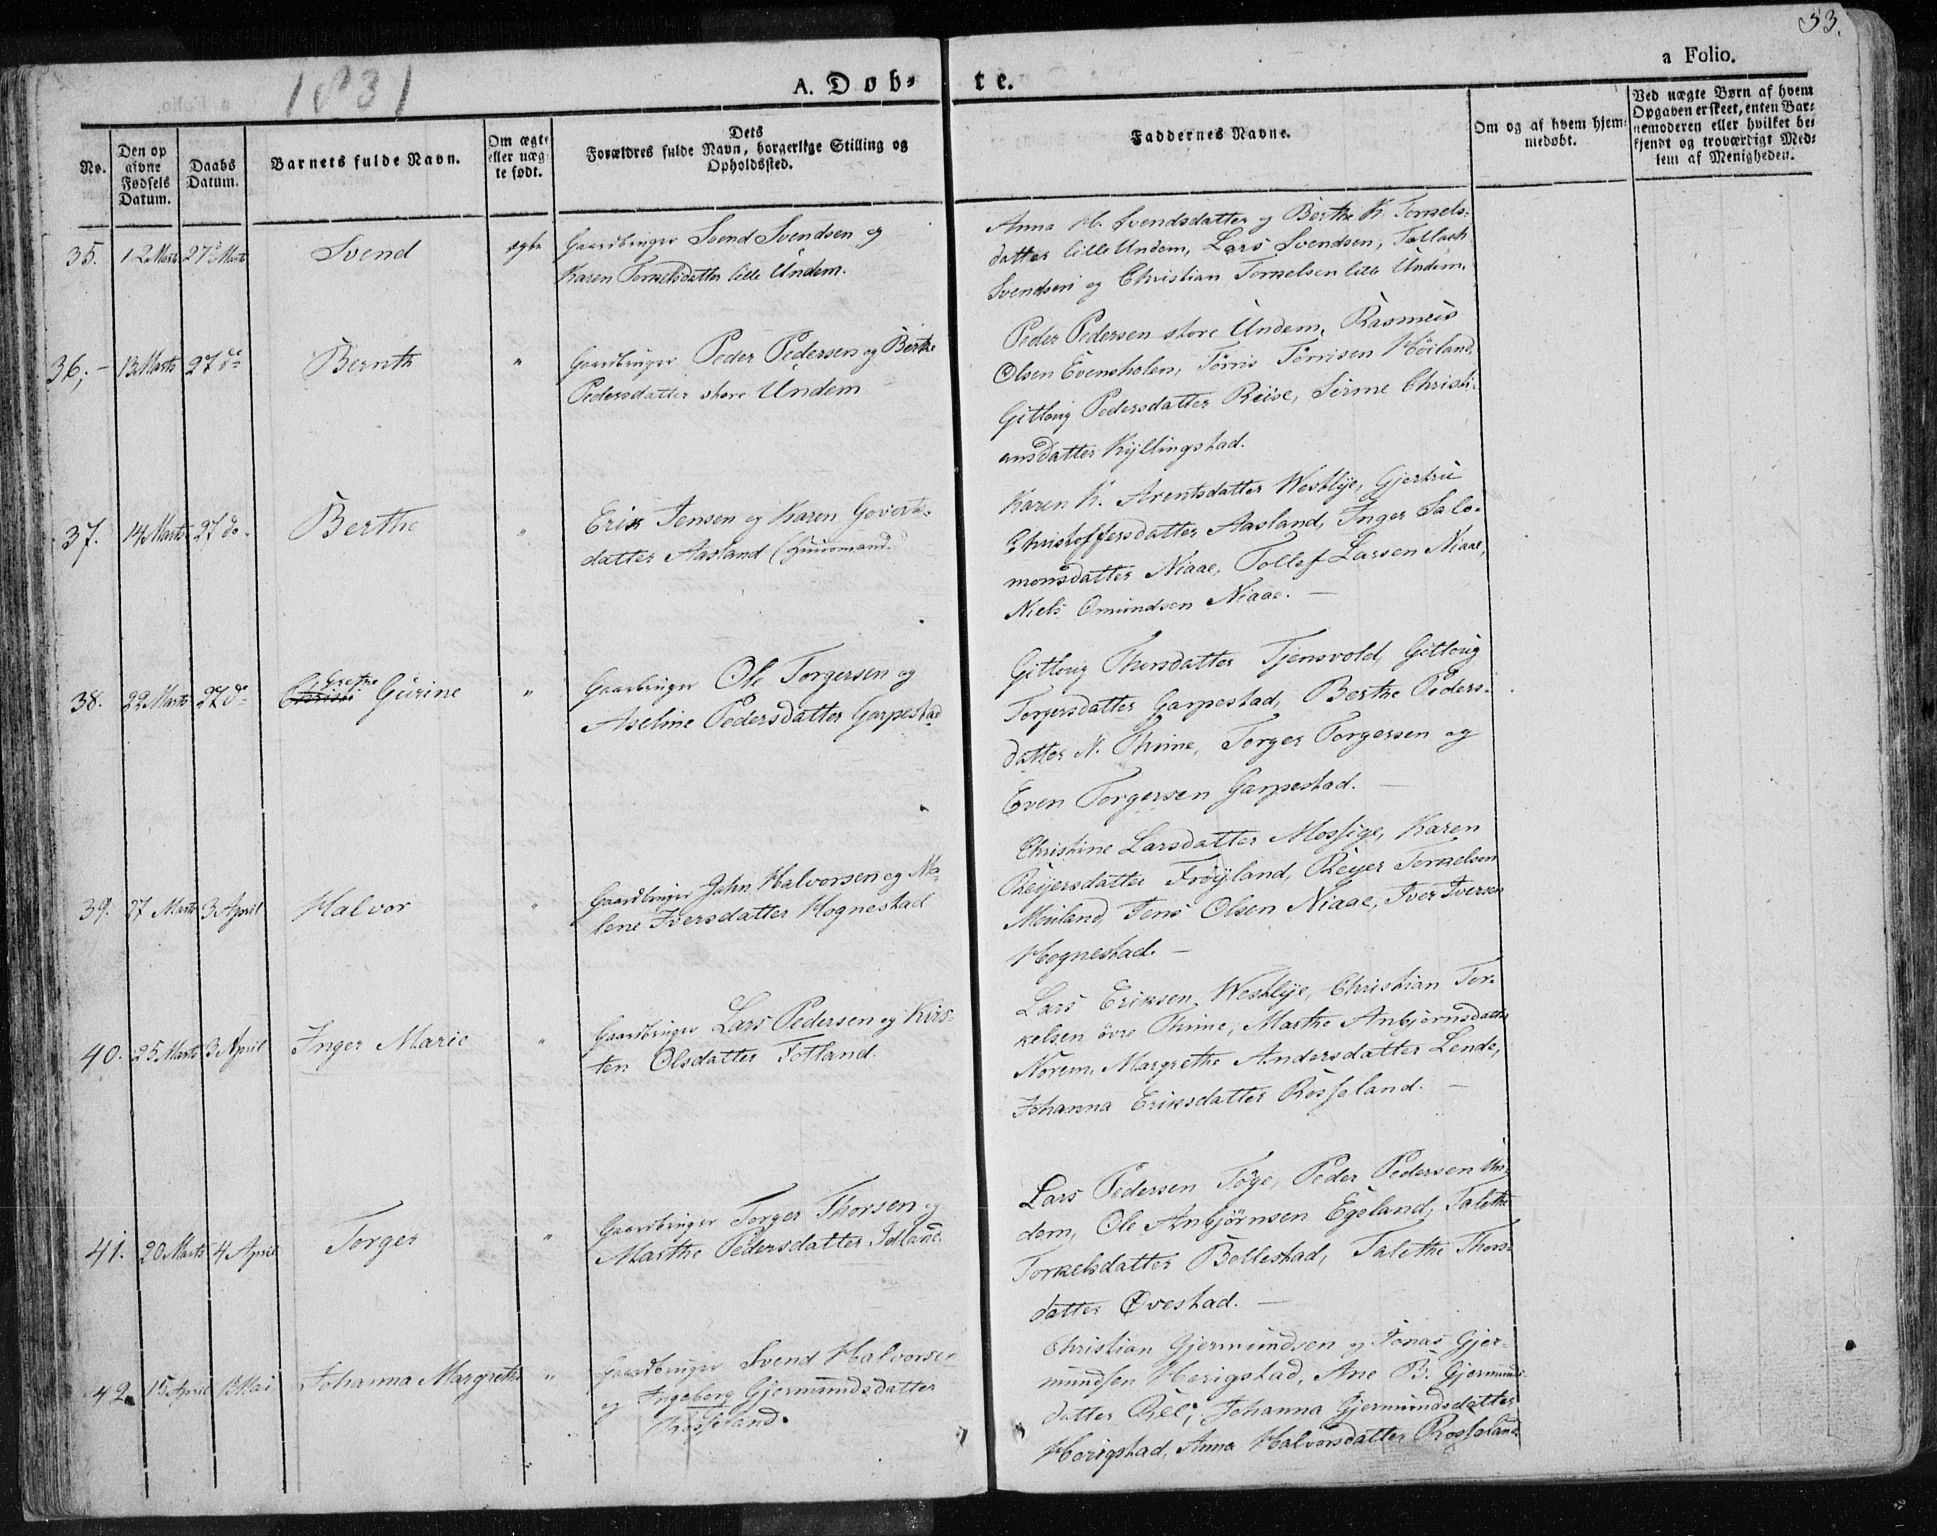 53.
1831
A. Døb-
te.
a Folio.
No.
Den op
givne
Fødsels
Datum.
Daabs
Datum.
Barnets fulde Navn.
Om ægte
eller uæg-
te født.
Dets
Forældres fulde Navn, borgerlige Stilling og
Opholdssted.
Faddernes Navne.
Om og af hvem hjem-
medøbt.
Ved uægte Børn af hvem
Opgaven er skeet, enten Bar-
nemoderen eller hvilket be-
kjendt og troværdigt Med-
lem af Menigheden.
35. 12 Marts 27de Marts Svend ægte
Gaardbruger Svend Svendsen og
Karen Torkelsdatter lille Undem.
Anna M. Svendsdatter og Berthe K. Torkels-
datter lille Undem, Lars Svendsen, Tollach
Svendsen og Christian Torkelsen lille Undem.
36. 13 Marts 27 do Bernth "
Gaardbruger Peder Pedersen og Berthe
Pedersdatter store Undem
Peder Pedersen store Undem, Rasmus
Olsen Evensholen, Tørris Tørrisen Høiland,
Gitloug Pedersdatter Reise, Serine Christi-
ansdatter Kyllingstad.
37. 14 Marts 27 do. Berthe "
Erik Jensen og Karen Goverts-
datter Aasland (Huusmand.)
Karen K. Arentsdatter Westlye, Gjertru
Christoffersdatter Aasland, Inger Salo-
monsdatter Niaae, Tollef Larsen Niaae,
Niels Omundsen Niaae. —
38. 22 Marts 27 do Grethe Gurine "
Gaardbruger Ole Torgersen og
Aseline Pedersdatter Garpestad
Gitloug Thorsdatter Tjensvold, Gitloug
Torgersdatter Garpestad, Berthe Peders-
datter N. Thime, Torger Torgersen og
Even Torgersen Garpestad. —
39. 27 Marts 3 April Halvor "
Gaardbruger Jahn Halvorsen og Ma-
lene Iversdatter Hognestad
Christine Larsdatter Mossige, Karen
Reyersdatter Frøyland, Reyer Torkelsen
Meiland, Jens Olsen Niaae, Iver Iversen
Hognestad. —
40. 25 Marts 3 April Inger Marie "
Gaardbruger Lars Pedersen og Kirs-
ten Olsdatter Totland.
Lars Eriksen Westlye, Christian Tor-
kelsen øvre Thime, Marthe Anbjørnsdatter
Norem, Margrethe Andersdatter Lende,
Johanna Eriksdatter Rosseland. —
41. 20 Marts 4 April Torger "
Gaardbruger Torger Thorsen og
Marthe Pedersdatter Totland.
Lars Pedersen Tøge, Peder Pedersen Un-
dem, Ole Anbjørnsen Egeland, Talethe
Torkelsdatter Bollestad, Talethe Thors-
datter Ovestad. —
42. 15 April 1 Mai Johanna Margrethe "
Gaardbruger Svend Halvorsen
og Ingeborg Gjermundsdatter
Rosseland.
Christian Gjermundsen og Jonas Gjer-
mundsen Herigstad, Ane B. Gjermunds-
datter Ree, Johanna Gjermundsdatter
Herigstad, Anna Halvorsdatter Rosseland.